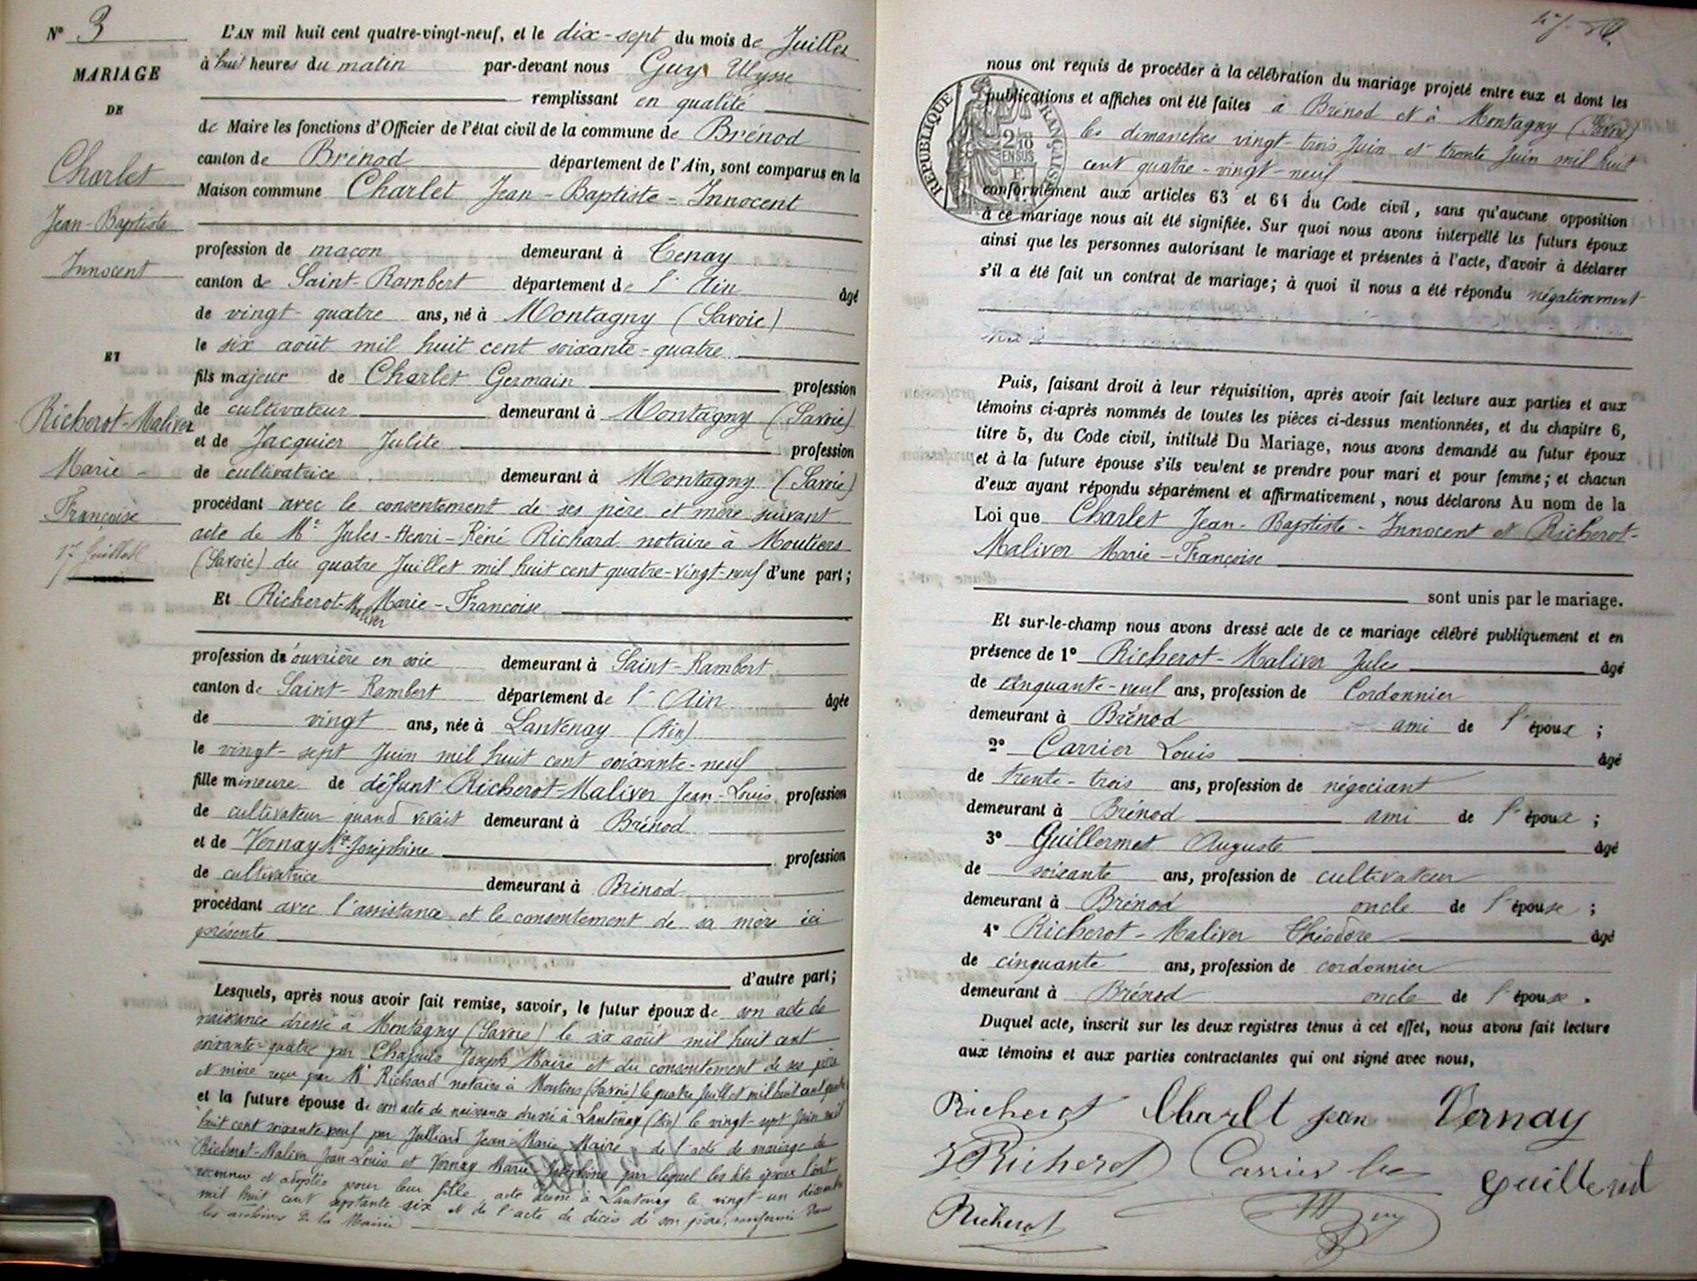 N° 3
MARIAGE
DE
Charlet
Jean-Baptiste
Innocent
ET
Richerot-Maliver
Marie-
Françoise
17 Juillet
L'AN mil huit cent quatre-vingt-neuf, et le dix-sept du mois de Juillet
à huit heures du matin par-devant nous Guy Ulysse
remplissant en qualité
de Maire les fonctions d'Officier de l'état civil de la commune de Brénod
canton de Brénod département de l'Ain, sont comparus en la
Maison commune Charlet Jean-Baptiste-Innocent
profession de maçon demeurant à Tenay
canton de Saint-Rambert département de l'Ain âgé
de vingt-quatre ans, né à Montagny (Savoie)
le six août mil huit cent soixante-quatre
fils majeur de Charlet Germain profession
de cultivateur demeurant à Montagny (Savoie)
et de Jacquier Julite profession
de cultivatrice demeurant à Montagny (Savoie)
procédant avec le consentement de ses père et mère suivant
acte de Me Jules-Henri-Réné Richard notaire à Moutiers
(Savoie) du quatre Juillet mil huit cent quatre-vingt-neuf d'une part;
Et Richerot-Maliver Marie-Françoise
profession de ouvrière en soie demeurant à Saint-Rambert
canton de Saint-Rambert département de l'Ain âgée
de vingt ans, née à Lantenay (Ain)
le vingt-sept Juin mil huit cent soixante-neuf
fille mineure de défunt Richerot-Maliver Jean-Louis profession
de cultivateur quand vivait demeurant à Brénod
et de Vernay Mie Joséphine profession
de cultivatrice demeurant à Brénod
procédant avec l'assistance et le consentement de sa mère ici
présente
d'autre part;
Lesquels, après nous avoir fait remise, savoir, le futur époux de son acte de
naissance dressé à Montagny (Savoie) le six août mil huit cent
soixante-quatre par Chapuis Joseph Maire et du consentement de ses père
et mère reçu par Me Richard notaire à Moutiers (Savoie) le quatre Juillet mil huit cent quatre
et la future épouse de son acte de naissance dressé à Lantenay (Ain) le vingt-sept Juin mil
huit cent soixante neuf par Julliard Jean-Marie Maire, de l'acte de mariage de
Richerot-Maliver Jean-Louis et Vernay Marie Joséphine par lequel les dits époux l'ont
reconnue et adoptée pour leur fille, acte dressé à Lantenay le vingt-un décembre
mil huit cent septante six et de l'acte de décès de son père, renfermé dans
les archives de la Mairie
nous ont requis de procéder à la célébration du mariage projeté entre eux et dont les
publications et affiches ont été faites à Brénod et à Montagny (Savoie)
les dimanches vingt-trois Juin et trente Juin mil huit
cent quatre-vingt-neuf
RÉPUBLIQUE FRANÇAISE
2/10
EN SUS
conformément aux articles 63 et 64 du Code civil, sans qu'aucune opposition
à ce mariage nous ait été signifiée. Sur quoi nous avons interpellé les futurs époux
ainsi que les personnes autorisant le mariage et présentes à l'acte, d'avoir à déclarer
s'il a été fait un contrat de mariage; à quoi il nous a été répondu négativement
Puis, faisant droit à leur réquisition, après avoir fait lecture aux parties et aux
témoins ci-après nommés de toutes les pièces ci-dessus mentionnées, et du chapitre 6,
titre 5, du Code civil, intitulé Du Mariage, nous avons demandé au futur époux
et à la future épouse s'ils veulent se prendre pour mari et pour femme; et chacun
d'eux ayant répondu séparément et affirmativement, nous déclarons Au nom de la
Loi que Charlet Jean-Baptiste-Innocent et Richerot-
Maliver Marie-Françoise
sont unis par le mariage.
Et sur-le-champ nous avons dressé acte de ce mariage célébré publiquement et en
présence de 1° Richerot-Maliver Jules âgé
de cinquante-neuf ans, profession de Cordonnier
demeurant à Brénod ami de l'époux;
2° Carrier Louis âgé
de trente-trois ans, profession de négociant
demeurant à Brénod ami de l'époux;
3° Guillermet Auguste âgé
de soixante ans, profession de cultivateur
demeurant à Brénod oncle de l'épouse;
4° Richerot-Maliver Théodore âgé
de cinquante ans, profession de cordonnier
demeurant à Brénod oncle de l'épouse.
Duquel acte, inscrit sur les deux registres tenus à cet effet, nous avons fait lecture
aux témoins et aux parties contractantes qui ont signé avec nous,
Richerot Charlt jean Vernay
Richerot Carrier
Richerot Guy